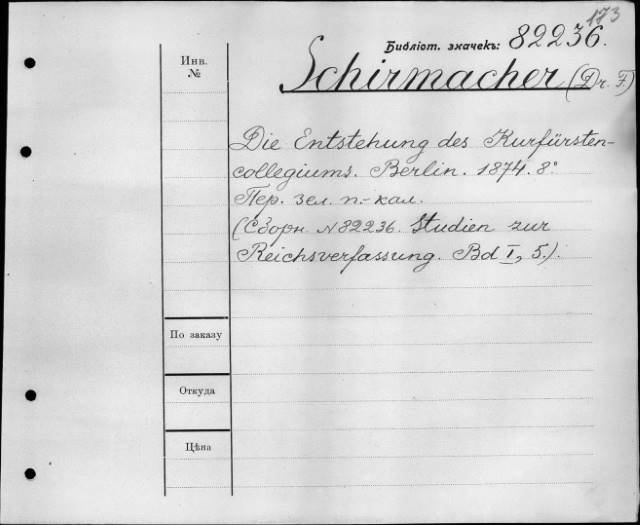 173
Библіот. значекъ: 82236.
Инв.
№
Schirmacher (Dr. F.)
Die Entstehung des Kurfürsten-
collegiums. Berlin. 1874. 8°
Пер. зел. п.-кал.
(Сборн. N 82236. Studien zur
Reichsverfassung. Bd I, 5.).
По заказу
Откуда
Цѣна